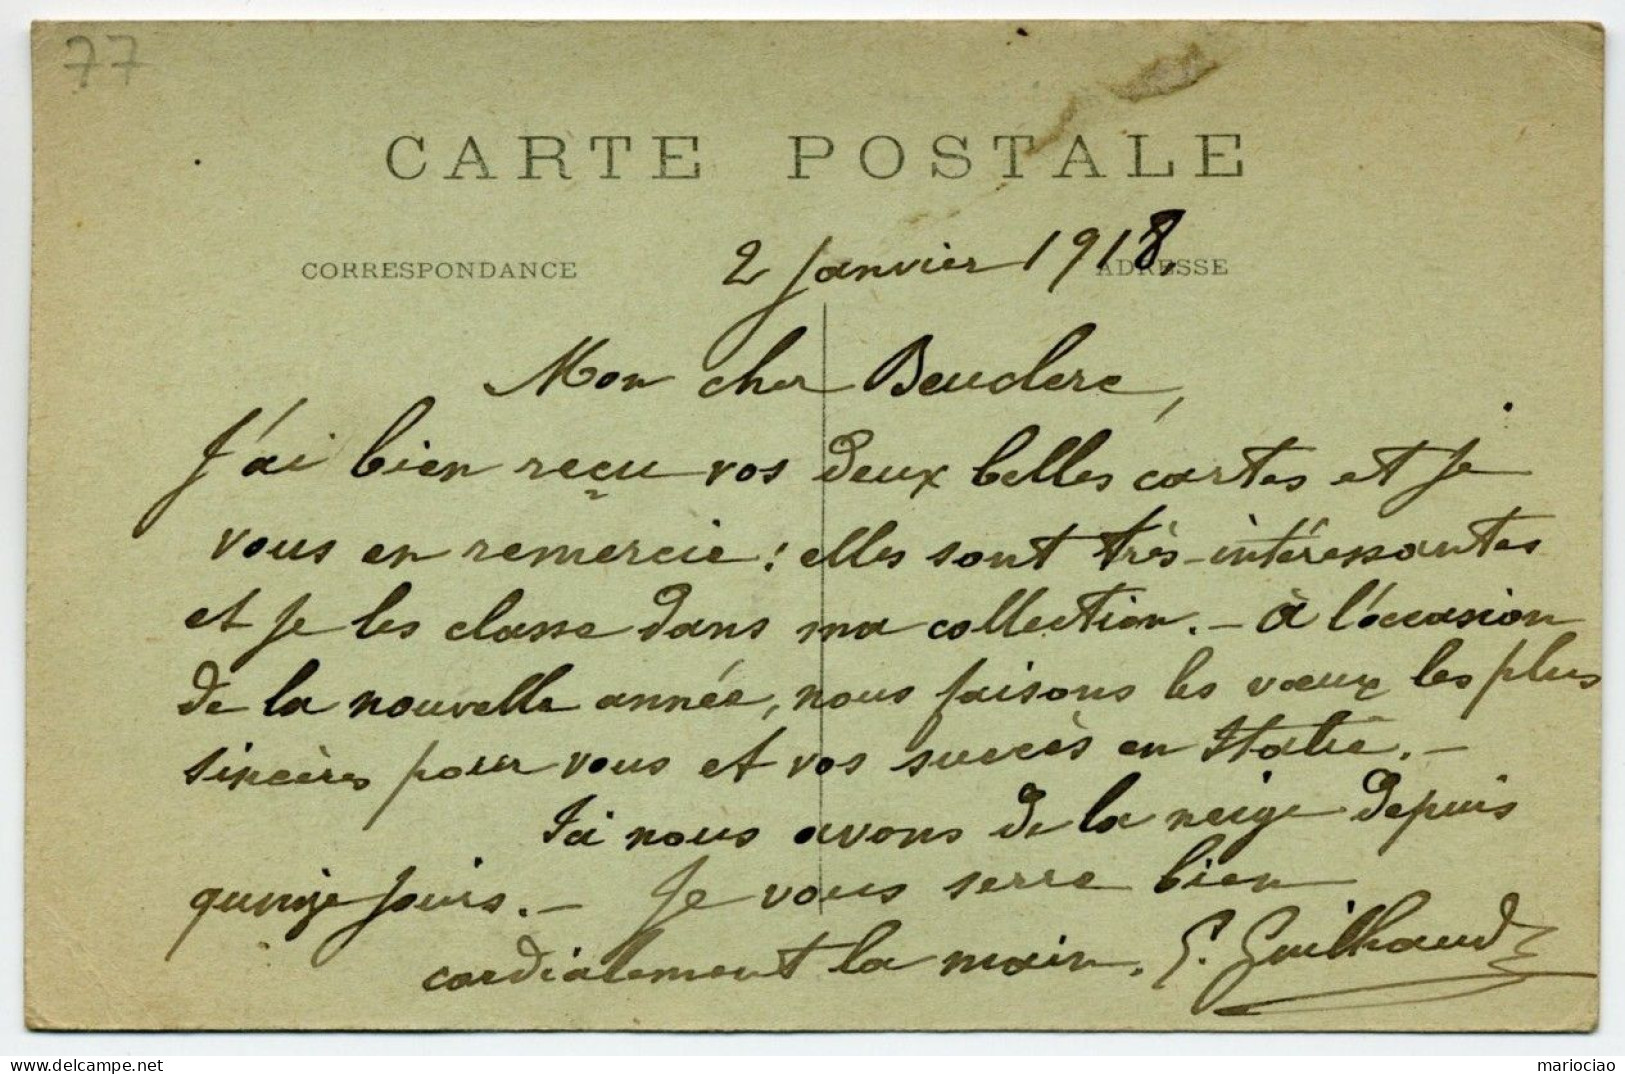 77
CARTE POSTALE
CORRESPONDANCE
ADRESSE
2 Janvier 1918.
Mon cher Beuclerc,
J'ai bien reçu vos deux belles cartes et je
vous en remercie : elles sont très-intéressantes
et je les classe dans ma collection. — à l'occasion
de la nouvelle année, nous faisons les vœux les plus
sincères pour vous et vos succès en Italie. —
Ici nous avons de la neige depuis
quinze jours. — Je vous serre bien
cordialement la main. E. Guilhaud
mariociao